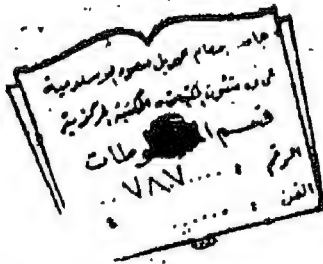 جامعة الإمام محمد بن سعود الإسلامية
عمادة شئون المكتبات المكتبة المركزية
قسم المخطوطات
الرقم : ٧٨٠٧
الفن :